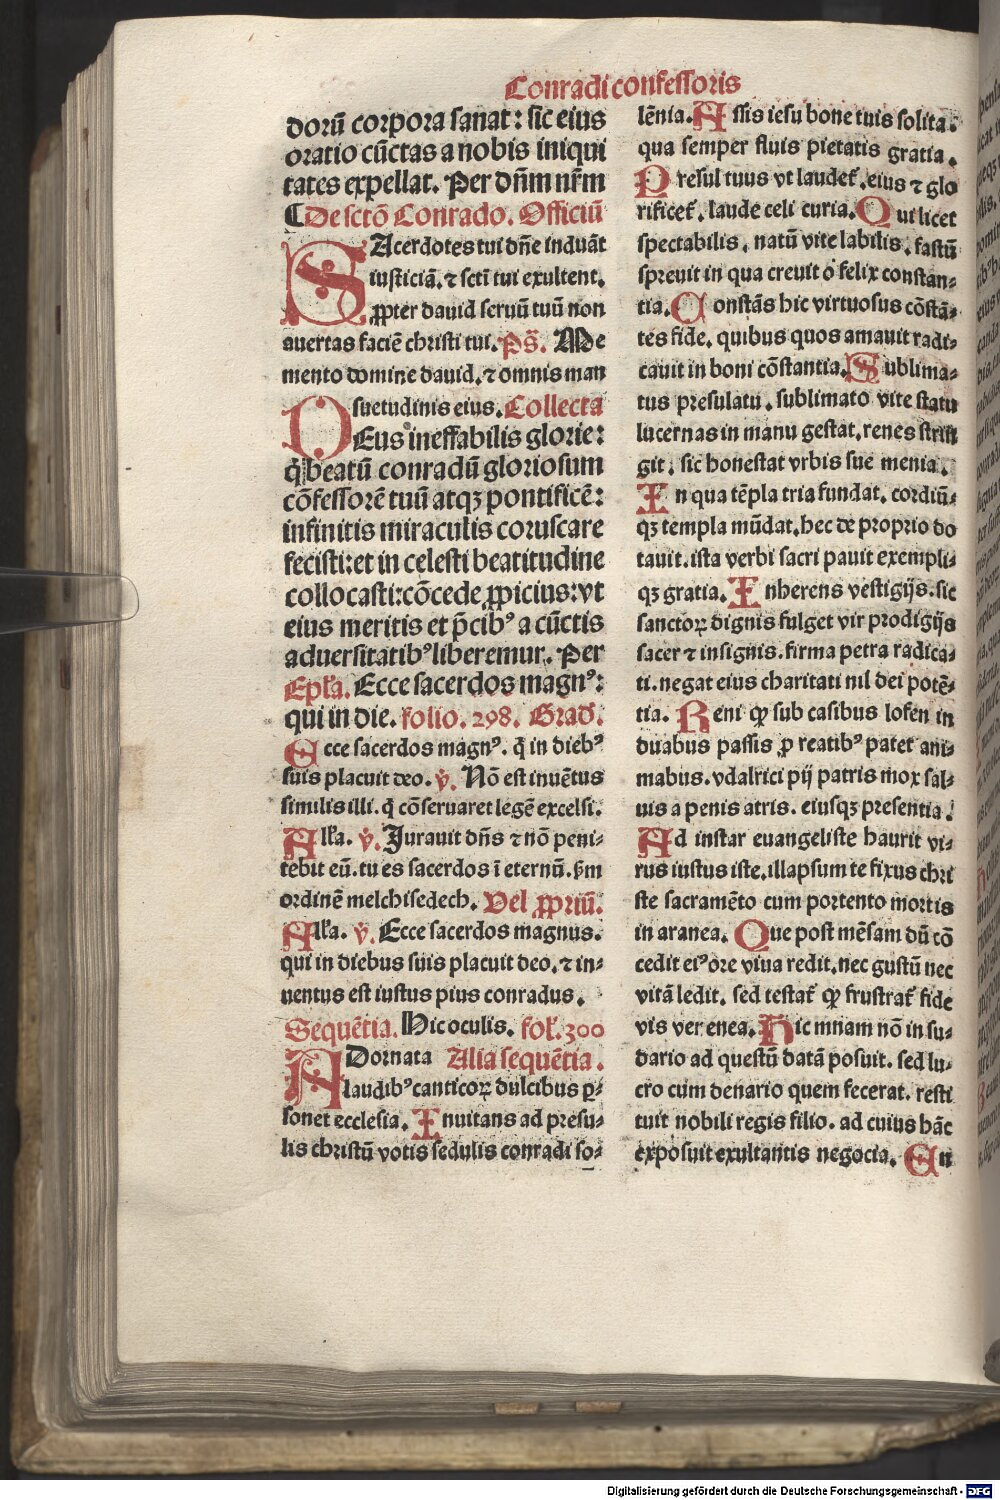 Conradi confessoris
dorū corpora sanat: sic eius
oratio cūctas a nobis iniqui
tates expellat. Per dn̄m nr̄m
De sctō Conrado. Officiū
SAcerdotes tui dn̄e induāt
iusticiā. ⁊ scti tui exultent.
ꝓpter dauid seruū tuū non
auertas faciē christi tui. Ps̄. Me
mento domine dauid. ⁊ omnis man
suetudinis eius. Collecta
DEus ineffabilis glorie:
q̇ beatū conradū gloriosum
cōfessorē tuū atqꝫ pontificē:
infinitis miraculis coruscare
fecisti: et in celesti beatitudine
collocasti: cōcede ꝓpicius: vt
eius meritis et p̄cibꝰ a cūctis
aduersitatibꝰ liberemur. Per
Epl̄a. Ecce sacerdos magnꝰ:
qui in die. folio. 298. Grad̄.
Ecce sacerdos magnꝰ. q̇ in diebꝰ
suis placuit deo. ꝟ. Nō est inuētus
similis illi. q̇ cōseruaret legē excelsi.
All̄a. ꝟ. Jurauit dn̄s ⁊ nō peni-
tebit eū. tu es sacerdos ī eternū. ẜm
ordinē melchisedech. Vel ꝓpriū.
All̄a. ꝟ. Ecce sacerdos magnus.
qui in diebus suis placuit deo. ⁊ in-
uentus est iustus pius conradus.
Sequētia. Hic oculis. fol̄. 300
ADornata Alia sequētia.
laudibꝰ canticoꝝ dulcibus ꝑ-
sonet ecclesia. Inuitans ad presu-
lis christū votis sedulis conradi so-
lēnia. Assis iesu bone tuis solita.
qua semper fluis pietatis gratia.
Presul tuus vt laudet̄. eius ⁊ glo
rificet̄. laude celi curia. Qui licet
spectabilis. natū vite labilis. fastū
spreuit in qua creuit o felix constan-
tia. Constās hic virtuosus cōstā-
tes fide. quibus quos amauit radi-
cauit in boni cōstantia. Sublima-
tus presulatu. sublimato vite statu
lucernas in manu gestat. renes strin
git. sic honestat vrbis sue menia.
In qua tēpla tria fundat. cordiū-
qꝫ templa mūdat. hec de proprio do
tauit. ista verbi sacri pauit exempli-
qꝫ gratia. Inherens vestigijs. sic
sanctoꝝ dignis fulget vir prodigijs
sacer ⁊ insignis. firma petra radica-
ti. negat eius charitati nil dei potē-
tia. Reni ꝙ sub casibus lofen in
duabus passis ꝓ reatibꝰ patet ani-
mabus. vdalrici pij patris mox sal-
uis a penis atris. eiusqꝫ presentia.
Ad instar euangeliste haurit vi-
rus iustus iste. illapsum te fixus chri
ste sacramēto cum portento mortis
in aranea. Que post mēsam dū cō
cedit eiꝰ ore viua redit. nec gustū nec
vitā ledit. sed testat̄ ꝙ frustrat̄ fide
vis ver enea. Hic mnam nō in su-
dario ad questū datā posuit. sed lu-
cro cum denario quem fecerat. resti
tuit nobili regis filio. ad cuius hāc
exposuit exultantis negocia. En
Digitalisierung gefördert durch die Deutsche Forschungsgemeinschaft - DFG